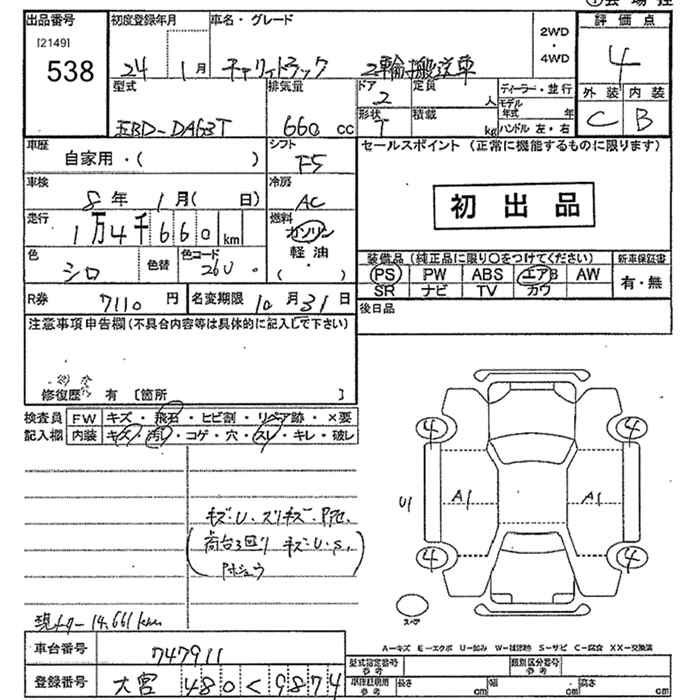 会場控
出品番号 初度登録年月 車名・グレード 2WD・4WD 評価点
[2149]
538 24 1月 キャリィトラック 2輪搬送車 4
型式 排気量 ドア 定員 ディーラー・並行 外装 内装
EBD-DA63T 660 cc 2 人 モデル年式 年 C B
形状 積載
T kg ハンドル 左・右
車歴 シフト セールスポイント (正常に機能するものに限ります)
自家用・( ) F5
車検 冷房
8年 1月( 日) AC 初出品
走行 燃料
1万4千660km ガソリン
軽油
( ・ )
色 色替 色コード 装備品 (純正品に限り○をつけてください) 新車保証書
シロ 26U PS PW ABS エアB AW 有・無
SR ナビ TV カワ
R券 7110 円 名変期限 10月31日 後日品
注意事項申告欄(不具合内容等は具体的に記入して下さい)
修復歴 有 〔箇所 〕
検査員 FW キズ・飛石・ヒビ割・リペア跡・×要
記入欄 内装 キズ・汚レ・コゲ・穴・スレ・キレ・破レ
4 4
U1 A1 A1
キズ・U・スリキズ・Pアセ、
荷台回り キズ・U・S、
Pホシュウ
4 4
スペア
現メーター14,661km
A－キズ E－エクボ U－凹み W－補修跡 S－サビ C－腐食 XX－交換済
車台番号 747911 型式指定番号 参考 類別区分番号 参考
登録番号 大宮 480 く 9874 車検証期用 参考 長さ cm 幅 cm 高さ cm